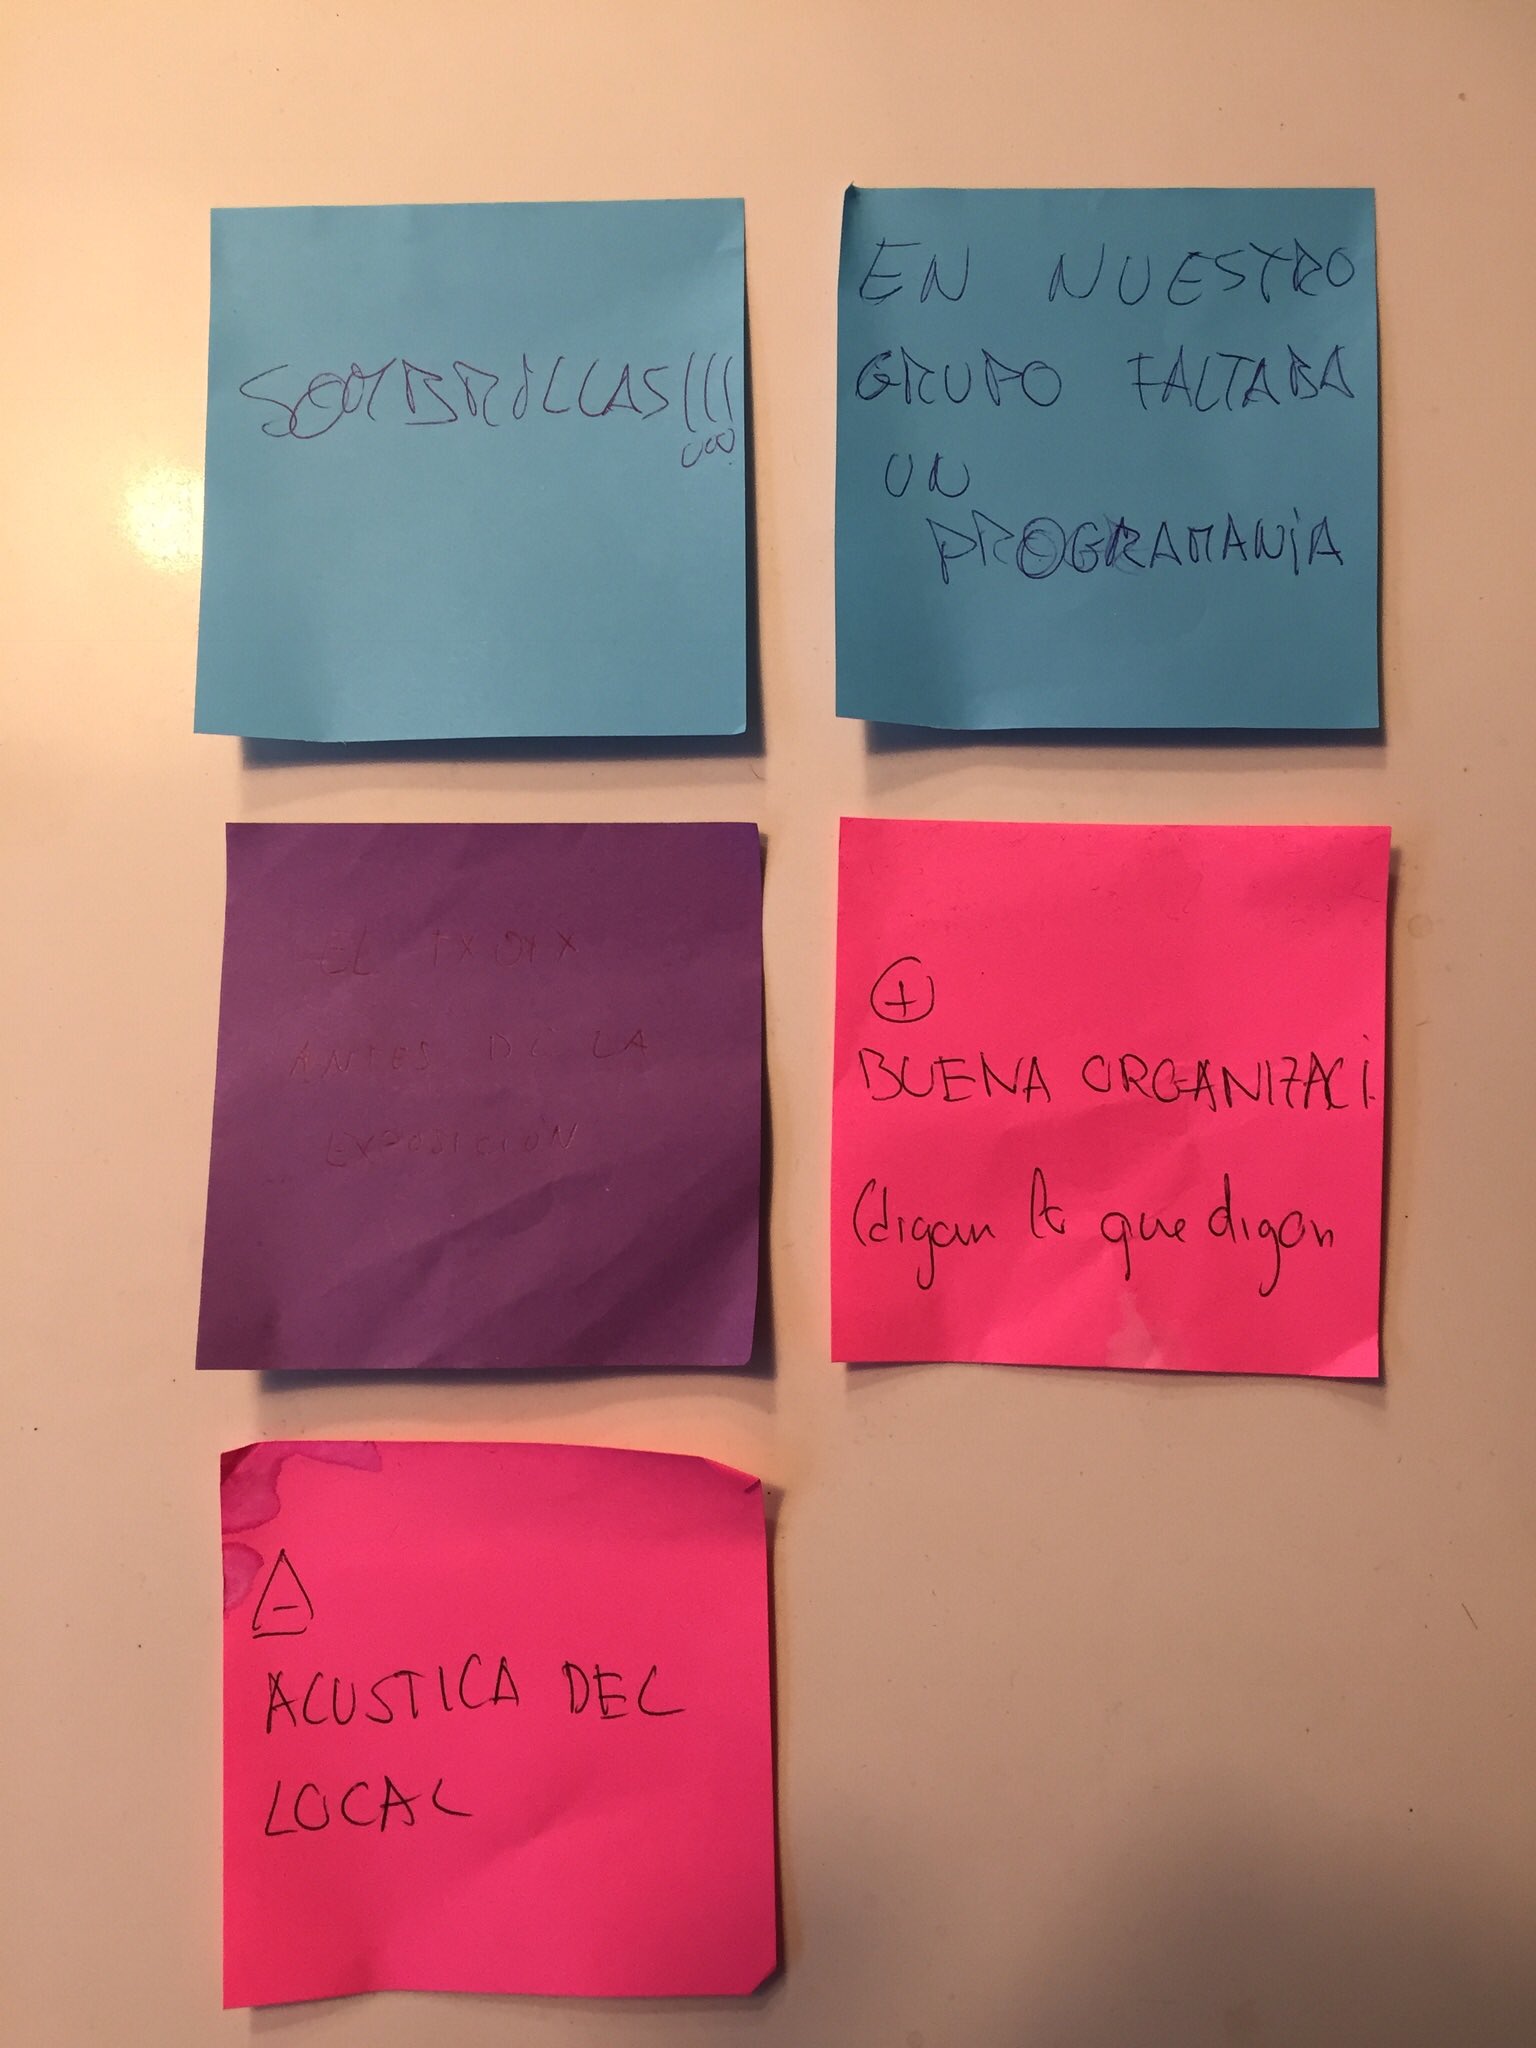 SOMBRILLAS!!!
EN NUESTRO
GRUPO FALTABA
UN
PROGRAMANIA
EL
ANTES DE LA
EXPOSICIÓN
+
BUENA ORGANIZACI.
(digan lo que digan
-
ACUSTICA DEL
LOCAL